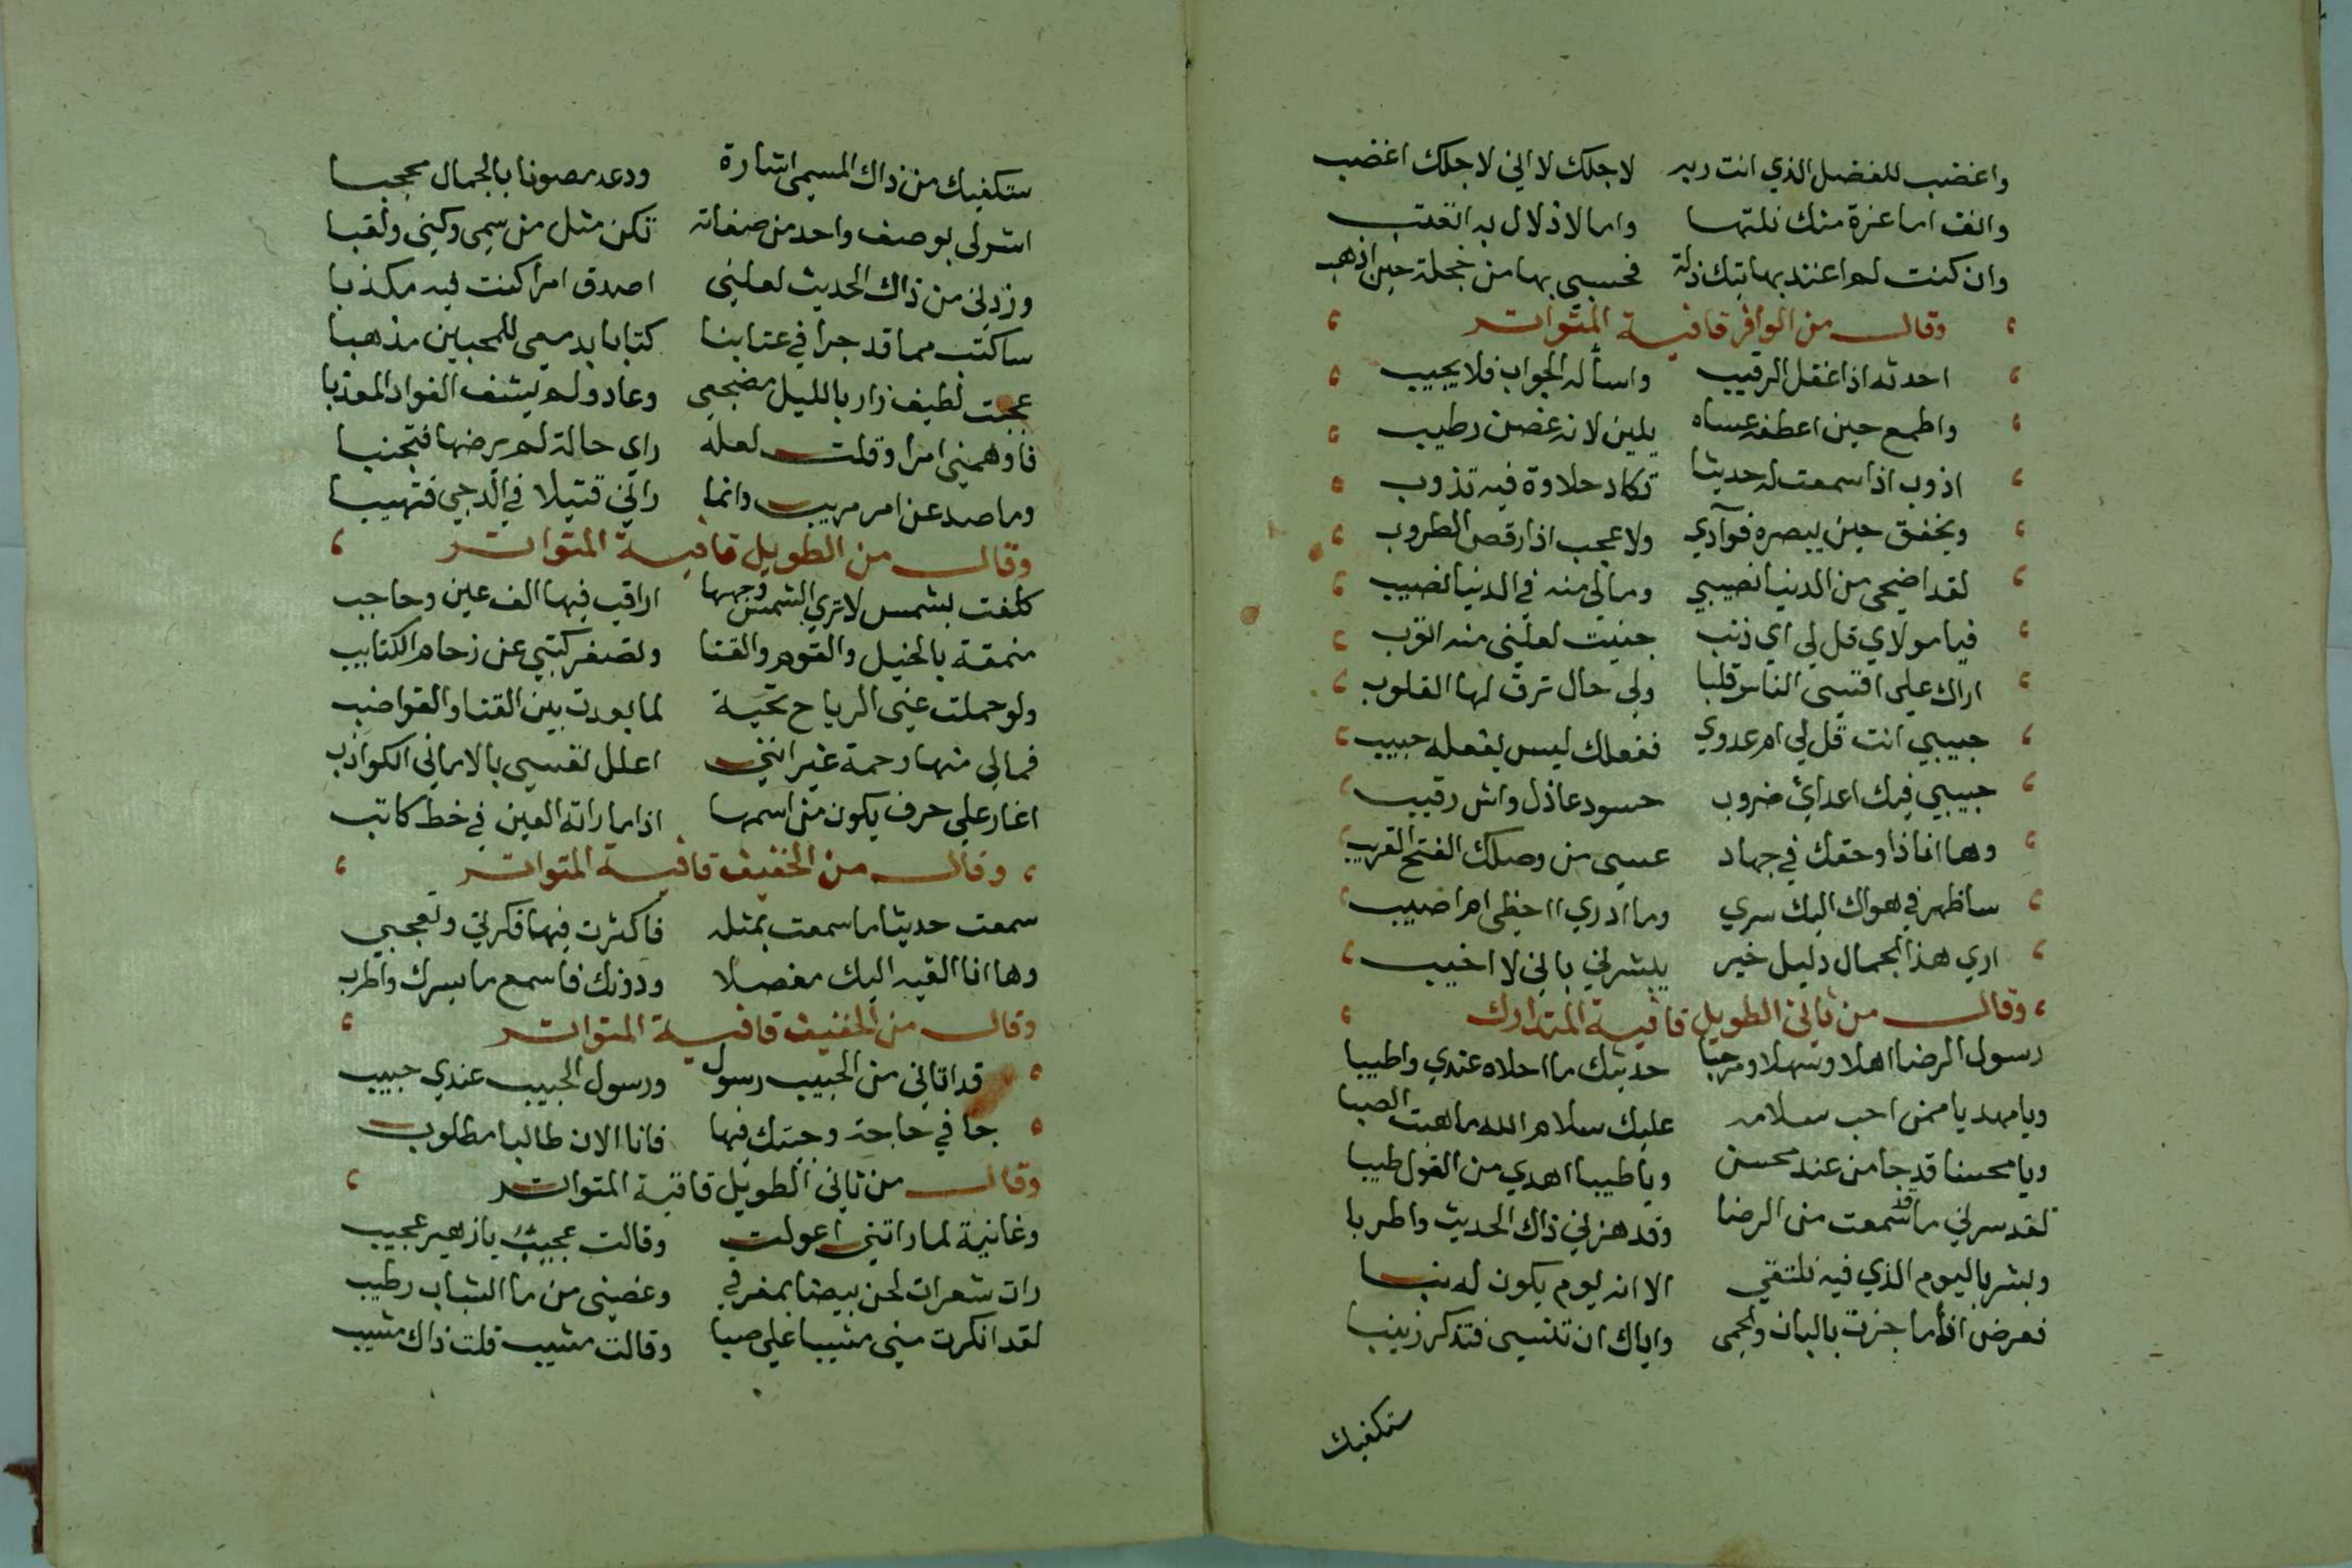 واغضب للفضل الذي انت ربه لاجلك لا اني لاجلك اغضب
وانف اما عزة منك نلتها واما لاذلال به اتعتب
وان كنت لم اعتد بها تيك ذلة فحسبي بها من خجلة حين اذهب
وقال من الوافر قافية المتواتر
احدثه اذا غفل الرقيب واسأله الجواب فلا يجيب
واطمع حين اعطفه عساه يلين لانه غصن رطيب
اذوب اذا سمعت له حديثا تكاد حلاوة فيه تذوب
ويخفق حين يبصره فوآدي ولا عجب اذا رقص الطروب
لقد اضحى من الدنيا نصيبي وما لي منه في الدنيا نصيب
فيا مولاي قل لي اي ذنب جنيت لعلني منه اتوب
اراك علي اقسى الناس قلبا ولي حال ترق لها القلوب
حبيبي انت قل لي ام عدوي ففعلك ليس يفعله حبيب
حبيبي فيك اعدائ ضروب حسود عاذل واش رقيب
وها انا ذا وحقك في جهاد عسى من وصلك الفتح القريب
ساظهر في هواك اليك سري وما ادري ااخطى ام اصيب
اري هذا الجمال دليل خير يبشرني باني لا اخيب
وقال من ثاني الطويل قافية المتدارك
رسول الرضا اهلا وسهلا ومرحبا حديثك ما احلاه عندي واطيبا
ويا مهديا ممن احب سلامه عليك سلام الله ما هبت الصبا
ويا محسنا قد جا من عند محسن ويا طيبا اهدي من القول طيبا
لقد سرني ما قد سمعت من الرضا وقد هزني ذاك الحديث واطربا
وبشر باليوم الذي فيه نلتقي الا انه يوم يكون له نبا
فعرض اذا ما جزت بالبان والحمى واياك ان تنسى فتذكر زينبا
ستكفيك
ستكفيك من ذاك المسمى اشارة ودعه مصونا بالجمال محجبا
اشر لي بوصف واحد من صفاته تكن مثل من سمى وكنى ولقبا
وزدني من ذاك الحديث لعلني اصدق امرا كنت فيه مكذبا
ساكتب مما قد جرا في عتابنا كتابا بدمعي للمحبين مذهبا
عجبت لطيف زار بالليل مضجعي وعاد ولم يشف الفواد المعذبا
فاوهمني امرا وقلت لعله راي حالة لم يرضها فتجنبا
وما صد عن امر مريب وانما راني قتيلا في الدجي فتهيبا
وقال من الطويل قافية المتواتر
كلفت بشمس لا تري الشمس وجهها اراقب فيها الف عين وحاجب
ممنعة بالخيل والقوم والقنا وتضعف كتبي عن زحام الكتايب
ولو حملت عني الرياح تحية لما بعدت بين القنا والقواضب
فمالي منها رحمة غير انني اعلل نفسي بالاماني الكواذب
اغار علي حرف يكون من اسمها اذا ما راته العين في خط كاتب
وقال من الخفيف قافية المتواتر
سمعت حديثا ما سمعت بمثله فاكثرت فيها فكرتي وتعجبي
وها انا القيه اليك مفصلا ودونك فاسمع ما يسرك واطرب
وقال من الخفيف قافية المتواتر
قد اتاني من الحبيب رسول ورسول الحبيب عندي حبيب
جا في حاجة وجيتك فيها فانا الان طالبا مطلوب
وقال من ثاني الطويل قافية المتواتر
وغانية لما راتني اعولت وقالت عجيب يا زهير عجيب
رات شعرات لحن بيضا بمفرقي وغصني من ما الشباب رطيب
لقد انكرت مني مشيبا علي صبا وقالت مشيب قلت ذاك مشيب